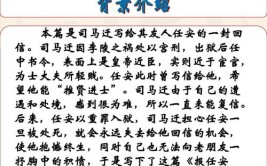 背景介绍
本篇是司马迁写给其友人任安的一封回
信。司马迁因李陵之祸处以宫刑，出狱后任
中书令，表面上是皇帝近臣，实则近于宦官，
为士大夫所轻贱。任安此时曾写信给他，希
望他能“推贤进士”。司马迁由于自己的遭
遇和处境，感到很为难，所以一直未能复信。
后来，任安以重罪入狱，司马迁担心任安一
旦被处死，就会永远失去给他回信的机会，
使他抱憾终生，同时自己也无法向老朋友一
抒胸中的积愤，于是写下了这篇《报任安